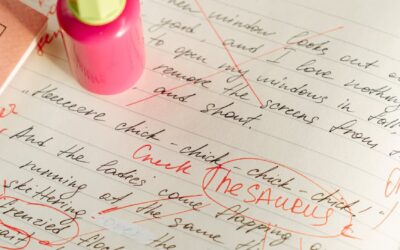 window looks out o
yard and I love nothing
to open my windows in fall
remove the screens from
and shout.
"Heeeere chick-chick, chick-chick!
And the ladies come flapping
Check Thesaurus
running at the same
skittering
Frenzied